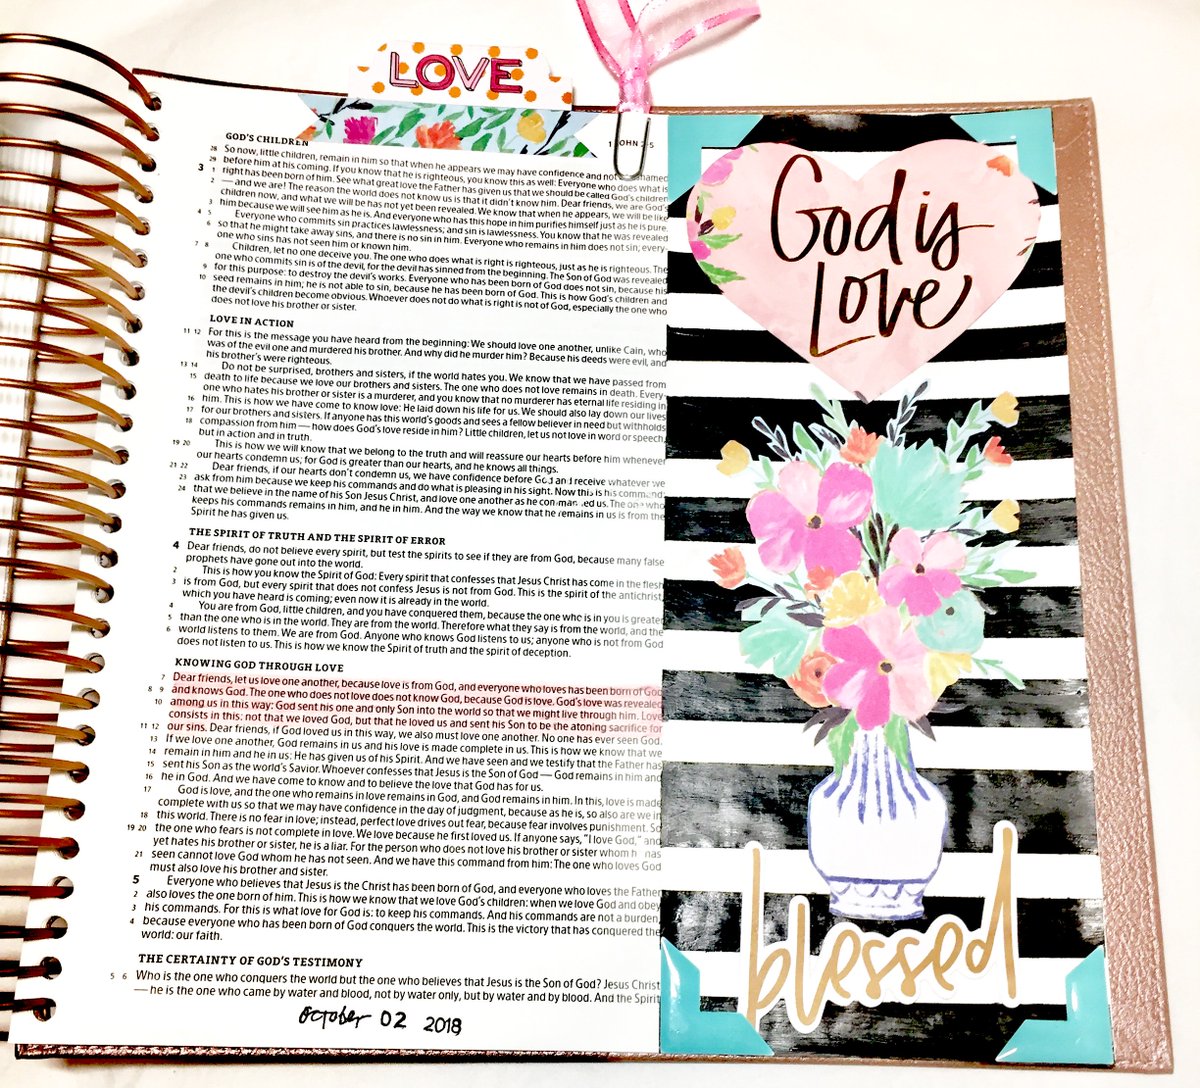 LOVE
1 JOHN 2-5
GOD'S CHILDREN
28 So now, little children, remain in him so that when he appears we may have confidence and not ashamed
29 before him at his coming. If you know that he is righteous, you know this as well: Everyone who does what is
3 1 right has been born of him. See what great love the Father has given us that we should be called God's children
2 — and we are! The reason the world does not know us is that it didn't know him. Dear friends, we are God's
children now, and what we will be has not yet been revealed. We know that when he appears, we will be like
3 him because we will see him as he is. And everyone who has this hope in him purifies himself just as he is pure.
4 5 Everyone who commits sin practices lawlessness; and sin is lawlessness. You know that he was revealed
6 so that he might take away sins, and there is no sin in him. Everyone who remains in him does not sin; every-
one who sins has not seen him or known him.
7 8 Children, let no one deceive you. The one who does what is right is righteous, just as he is righteous. The
one who commits sin is of the devil, for the devil has sinned from the beginning. The Son of God was revealed
9 for this purpose: to destroy the devil's works. Everyone who has been born of God does not sin, because his
10 seed remains in him; he is not able to sin, because he has been born of God. This is how God's children and
the devil's children become obvious. Whoever does not do what is right is not of God, especially the one who
does not love his brother or sister.
LOVE IN ACTION
11 12 For this is the message you have heard from the beginning: We should love one another, unlike Cain, who
was of the evil one and murdered his brother. And why did he murder him? Because his deeds were evil, and
his brother's were righteous.
13 14 Do not be surprised, brothers and sisters, if the world hates you. We know that we have passed from
15 death to life because we love our brothers and sisters. The one who does not love remains in death. Every-
one who hates his brother or sister is a murderer, and you know that no murderer has eternal life residing in
16 him. This is how we have come to know love: He laid down his life for us. We should also lay down our lives
17 for our brothers and sisters. If anyone has this world's goods and sees a fellow believer in need but withholds
18 compassion from him — how does God's love reside in him? Little children, let us not love in word or speech,
but in action and in truth.
19 20 This is how we will know that we belong to the truth and will reassure our hearts before him whenever
our hearts condemn us; for God is greater than our hearts, and he knows all things.
21 22 Dear friends, if our hearts don't condemn us, we have confidence before God and receive whatever we
23 ask from him because we keep his commands and do what is pleasing in his sight. Now this is his command:
24 that we believe in the name of his Son Jesus Christ, and love one another as he commanded us. The one who
keeps his commands remains in him, and he in him. And the way we know that he remains in us is from the
Spirit he has given us.
THE SPIRIT OF TRUTH AND THE SPIRIT OF ERROR
4 Dear friends, do not believe every spirit, but test the spirits to see if they are from God, because many false
prophets have gone out into the world.
2 This is how you know the Spirit of God: Every spirit that confesses that Jesus Christ has come in the flesh
3 is from God, but every spirit that does not confess Jesus is not from God. This is the spirit of the antichrist,
which you have heard is coming; even now it is already in the world.
4 You are from God, little children, and you have conquered them, because the one who is in you is greater
5 than the one who is in the world. They are from the world. Therefore what they say is from the world, and the
6 world listens to them. We are from God. Anyone who knows God listens to us; anyone who is not from God
does not listen to us. This is how we know the Spirit of truth and the spirit of deception.
KNOWING GOD THROUGH LOVE
7 Dear friends, let us love one another, because love is from God, and everyone who loves has been born of God
8 9 and knows God. The one who does not love does not know God, because God is love. God's love was revealed
10 among us in this way: God sent his one and only Son into the world so that we might live through him. Love
consists in this: not that we loved God, but that he loved us and sent his Son to be the atoning sacrifice for
11 12 our sins. Dear friends, if God loved us in this way, we also must love one another. No one has ever seen God.
13 If we love one another, God remains in us and his love is made complete in us. This is how we know that we
14 remain in him and he in us: He has given us of his Spirit. And we have seen and we testify that the Father has
15 sent his Son as the world's Savior. Whoever confesses that Jesus is the Son of God — God remains in him and
16 he in God. And we have come to know and to believe the love that God has for us.
17 God is love, and the one who remains in love remains in God, and God remains in him. In this, love is made
complete with us so that we may have confidence in the day of judgment, because as he is, so also are we in
18 this world. There is no fear in love; instead, perfect love drives out fear, because fear involves punishment. So
19 20 the one who fears is not complete in love. We love because he first loved us. If anyone says, "I love God," and
yet hates his brother or sister, he is a liar. For the person who does not love his brother or sister whom h has
21 seen cannot love God whom he has not seen. And we have this command from him: The one who loves God
must also love his brother and sister.
5 Everyone who believes that Jesus is the Christ has been born of God, and everyone who loves the Father
2 also loves the one born of him. This is how we know that we love God's children: when we love God and obey
3 his commands. For this is what love for God is: to keep his commands. And his commands are not a burden,
4 because everyone who has been born of God conquers the world. This is the victory that has conquered the
world: our faith.
THE CERTAINTY OF GOD'S TESTIMONY
5 6 Who is the one who conquers the world but the one who believes that Jesus is the Son of God? Jesus Christ
— he is the one who came by water and blood, not by water only, but by water and by blood. And the Spirit
October 02 2018
God is
Love
blessed